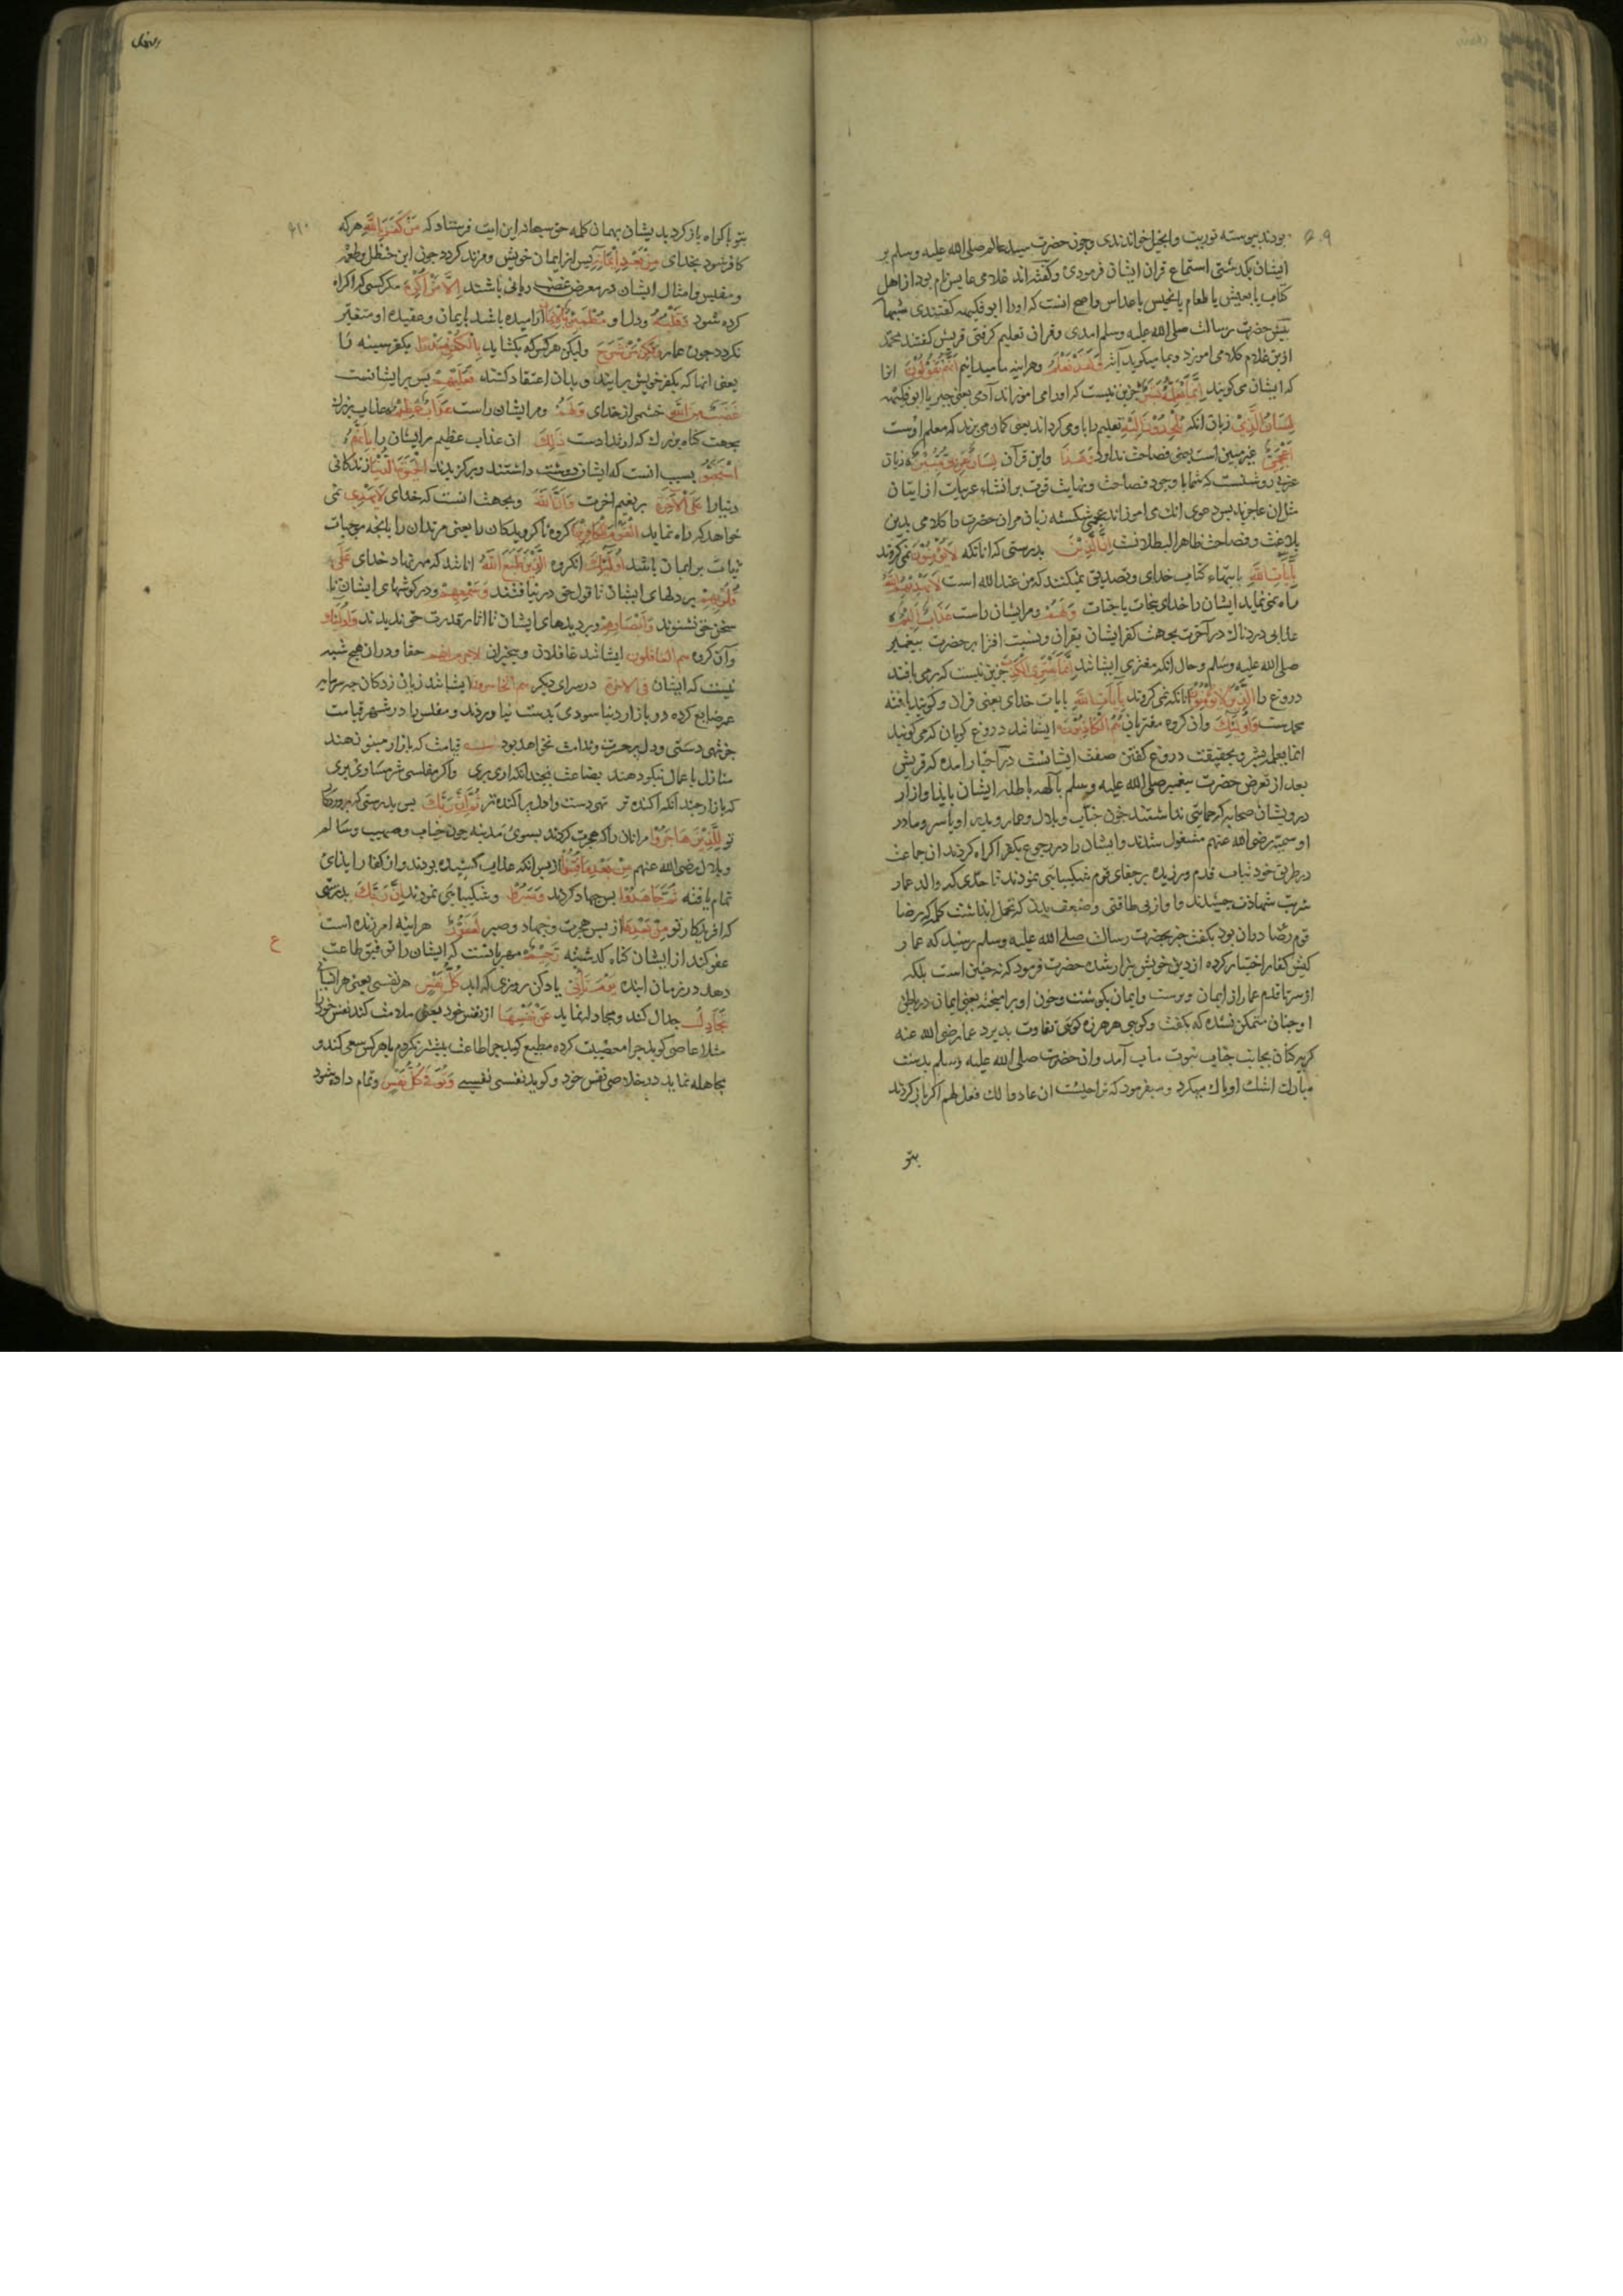 بودند پیوسته توریت وانجیل خواندندی وچون حضرت سیدعالم صلی الله علیه وسلم بر
ایشان بگذشتی استماع قران ایشان فرمودی وگفته اند غلامی عایس نام بود از اهل
کتاب یا یعیش یا بلعام یا یحنس یا عداس واصح انست که اورا ابو فکیهه گفتندی شبها
پیش حضرت رسالت صلی الله علیه وسلم امدی وقران تعلیم گرفتی قریش گفتند محمد
ازین غلام کلامی اموزد وبما میگوید وَلَقَدْ نَعْلَمُ وهراینه ما میدانیم اَنَّهُمْ يَقُولُونَ انرا
که ایشان می گویند اِنَّمَا يُعَلِّمُهُ بَشَرٌ جزین نیست که اورا می اموزاند آدمی یعنی جبر یا ابو فکیهه
لِسَانُ الَّذِي زبان انکه يُلْحِدُونَ اِلَيْهِ تعلیم را باو می گردانند یعنی گمان می برند که معلم اوست
اَعْجَمِيٌّ غیر مبین است یعنی فصاحت ندارد وَهَذَا واین قرآن لِسَانٌ عَرَبِيٌّ مُبِينٌ زبان
عربی روشنست که شما با وجود فصاحت ونهایت قوت بر انشاء عربیات از ایتان
مثل ان عاجزید پس دعوی انک می اموزاند عجمی شکسته زبان مران حضرت را کلامی بدین
بلاغت وفصاحت ظاهر البطلانست اِنَّ الَّذِينَ بدرستی که انانکه لَا يُؤْمِنُونَ نمی گروند
بِاٰيَاتِ اللَّهِ باینهاء کتاب خدای وتصدیق نمیکنند که من عند الله است لَا يَهْدِيهِمُ اللَّهُ
راه نمی نماید ایشان را خدای بنجات یا جنات وَلَهُمْ ومر ایشان راست عَذَابٌ اَلِيمٌ
عذابی دردناک در آخرت بجهت کفر ایشان بقران ونسبت افترا بر حضرت پیغمبر
صلی الله علیه وسلم وحال انکه مفتری ایشانند اِنَّمَا يَفْتَرِي الْكَذِبَ جزین نیست که بر می بافند
دروغ را الَّذِينَ لَا يُؤْمِنُونَ انانکه نمی گروند بِاٰيَاتِ اللَّهِ بایات خدای یعنی قران وگویند بافته
محمدست وَاُولٰئِكَ وان گروه مفتریان هُمُ الْكَاذِبُونَ ایشانند دروغ گویان که می گویند
انما یعلمه بشر وبحقیقت دروغ گفتن صفت ایشانست در اخبار امده که قریش
بعد از تعرض حضرت پیغمبر صلی الله علیه وسلم بآلهه باطله ایشان بایذا وازار
درویشان صحابه که حمایتی نداشتند چون خباب وبلال وعمار وپدر او یاسر ومادر
او سمیه رضی الله عنهم مشغول شدند وایشان را در رجوع بکفر اکراه کردند ان جماعت
در طریق خود ثبات قدم ورزیده بر جفای قوم شکیبایی نمودند تا حدی که والد عمار
شربت شهادت چشیدند واو از بی طاقتی وضعف بدن که تحمل ایذا نداشت کلمه که رضا
قوم در ان بود بگفت خبر بحضرت رسالت صلی الله علیه وسلم رسید که عمار
کیش کفار اختیار کرده از دین خویش بیزار شده حضرت فرمود که نه چنین است بلکه
از سر تا قدم عمار از ایمان پرست وایمان بگوشت وخون او برامیخته یعنی ایمان در باطن
او چنان متمکن نشده که بگفت وگوی هر هرزه گوئی تفاوت پذیرد عمار رضی الله عنه
گریه کنان بجانب جناب نبوت ماب آمد وان حضرت صلی الله علیه وسلم بدست
مبارک اشک او پاک میکرد ومیفرمود که ترا چیست ان عادوا لک فعد لهم اگر باز گردند
بتو
بتو با کراه باز گرد بدیشان بهمان کلمه حق سبحانه این ایت فرستاد که مَنْ كَفَرَ بِاللَّهِ هر که
کافر شود بخدای مِنْ بَعْدِ اِيمَانِهِ پس از ایمان خویش ومرتد گردد چون ابن خطل وطعمه
ومقیس وامثال ایشان در معرض غضب ربانی باشند اِلَّا مَنْ اُكْرِهَ مگر کسی که اکراه
کرده شود وَقَلْبُهُ ودل او مُطْمَئِنٌّ بِالْاِيمَانِ ارامیده باشد بایمان وعقیده او متغیر
نگردد چون عمار وَلَكِنْ مَنْ شَرَحَ ولیکن هر کس که بگشاید بِالْكُفْرِ صَدْرًا بکفر سینه را
یعنی انها که بکفر خویش برایند وبان اعتقاد کنند فَعَلَيْهِمْ پس بر ایشانست
غَضَبٌ مِنَ اللَّهِ خشمی از خدای وَلَهُمْ ومر ایشان راست عَذَابٌ عَظِيمٌ عذاب بزرک
بجهت گناه بزرک که ارتدادست ذَلِكَ ان عذاب عظیم مر ایشان را بِاَنَّهُمُ
اسْتَحَبُّوا بسبب انست که ایشان دوست داشتند وبرگزیدند الْحَيٰوةَ الدُّنْيَا زندگانی
دنیا را عَلَى الْاٰخِرَةِ بر نعیم اخرت وَاَنَّ اللَّهَ وبجهت انست که خدای لَا يَهْدِي نمی
خواهد که راه نماید الْقَوْمَ الْكَافِرِينَ گروه ناگرویدکان را یعنی مرتدان را بانچه موجبات
ثبات بر ایمان باشد اُولٰئِكَ انگروه الَّذِينَ طَبَعَ اللَّهُ انانند که مهر نهاد خدای عَلَى
قُلُوبِهِمْ بر دلهای ایشان تا قول حق در نیافتند وَسَمْعِهِمْ ودر گوشهای ایشان تا
سخن حق نشنوند وَاَبْصَارِهِمْ وبر دیدهای ایشان تا اثار قدرت حق ندیدند وَاُولٰئِكَ
وآن گروه هم الغافلون ایشانند غافلان وبیخبران لاجرم انهم حقا ودران هیچ شبه
نیست که ایشان فی الاخرة در سرای دیگر هم الخاسرون ایشانند زیان زدکان چه سرمایه
عمر ضایع کرده در بازار دنیا سودی بدست نیاوردند ومفلس را در شهر قیامت
جز تهی دستی ودل پر حسرت وندامت نخواهد بود قیامت که بازار مینو نهند
منازل باعمال نیکو دهند بضاعت بچندانکه اری بری واگر مفلسی شرمساری بری
که بازار چندانکه آکنده تر تهی دست را دل پراکنده تر ثُمَّ اِنَّ رَبَّكَ پس بدرستی که پروردگار
تو لِلَّذِينَ هَاجَرُوا مر انان را که هجرت کردند بسوی مدینه چون خباب وصهیب وسالم
وبلال رضی الله عنهم مِنْ بَعْدِ مَا فُتِنُوا از پس انکه عذاب کشیده بودند واز کفار ایذای
تمام یافته ثُمَّ جَاهَدُوا پس جهاد کردند وَصَبَرُوا وشکیبایی نمودند اِنَّ رَبَّكَ بدرستی
که افریدگار تو مِنْ بَعْدِهَا از پس هجرت وجهاد وصبر لَغَفُورٌ هراینه امرزنده است
عفو کند از ایشان گناه گذشته رَحِيمٌ مهربانست که ایشان را توفیق طاعت
دهد در زمان اینده يَوْمَ تَأْتِي یاد کن روزی که اید كُلُّ نَفْسٍ هر نفسی یعنی هر انسانی
تُجَادِلُ جدال کند ومجادله نماید عَنْ نَفْسِهَا از نفس خود یعنی ملامت کند نفس خود را
مثلا عاصی گوید چرا معصیت کرده مطیع گوید چرا طاعت بیشتر نکردم یا هر کس سعی کند و
مجاهله نماید در خلاصی نفس خود وگوید نفسی نفسی وَتُوَفَّى كُلُّ نَفْسٍ وتمام داده شود
ع